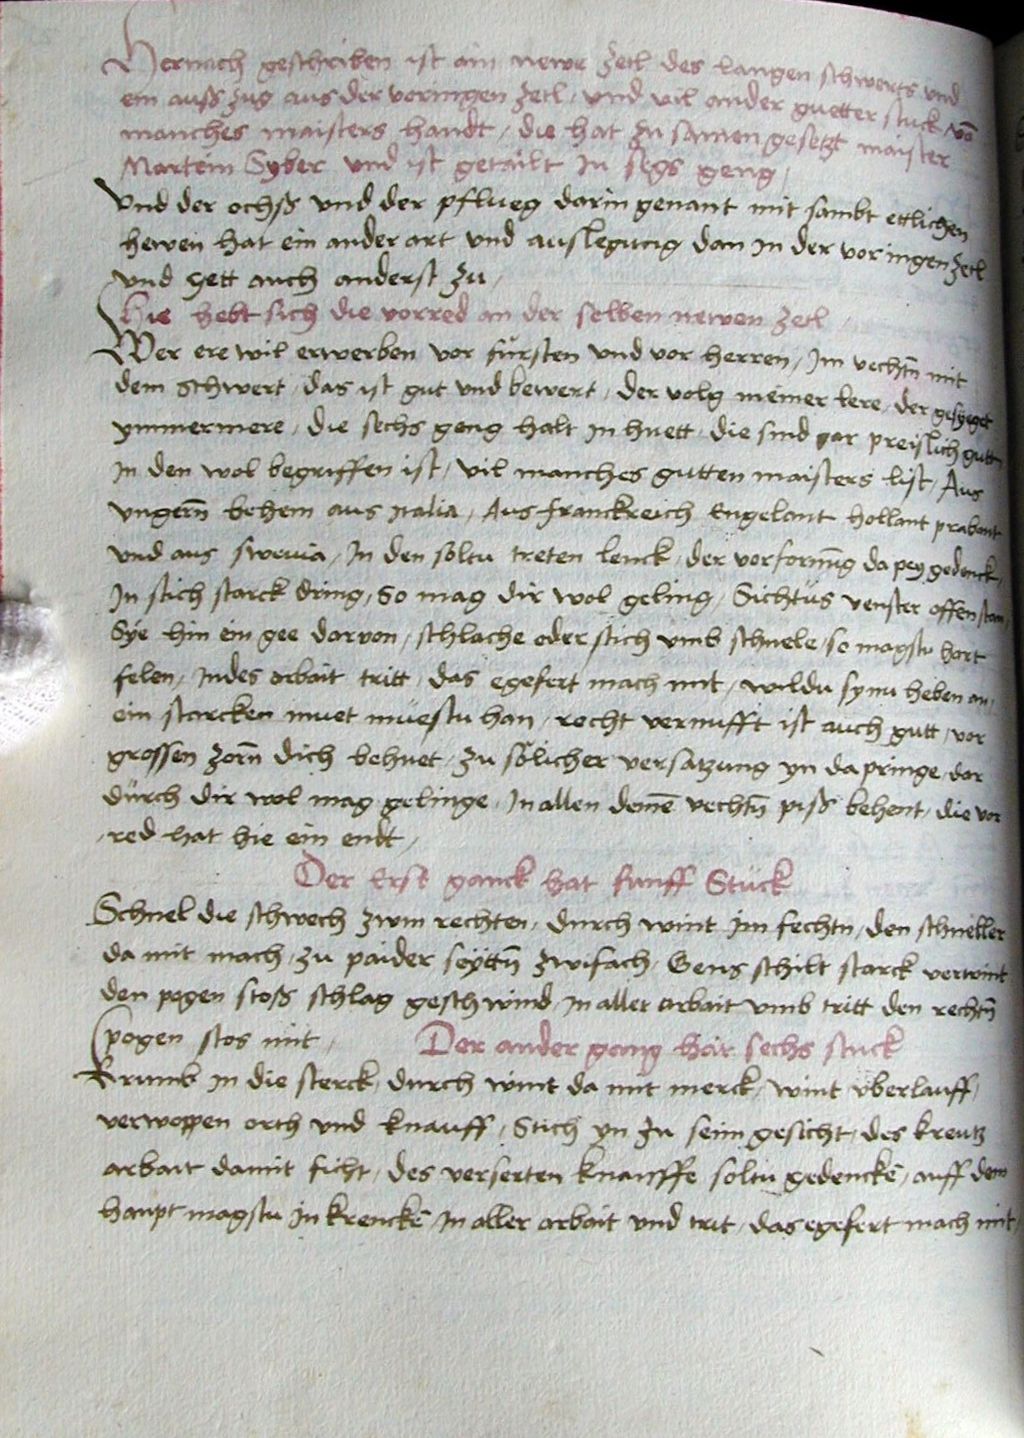 Hernach geschriben ist ain newe zetl des langen schwerts und
ein auß zug aus der voringen zetl / und vil ander guetter stuck võ
manches maisters handt / die hat zu samen gesetzt maister
Martein Syber und ist getailt in segs geng /
Vnd der ochß vnd der pflueg darin genant mit sambt ettlichen
hewen hat ein ander art vnd auslegung dan in der voringen zetl
vnd gett auch anderst zu /
Hie hebt sich die vorred an der selben newen zetl
Wer ere wil erwerben vor fürsten vnd vor herren / Im vechtñ mit
dem schwert / das ist gut vnd bewert / der volg meiner lere / der gesyeget
ymmermere / die sechs geng halt in huett / die sind gar preislich gutt
In den wol begriffen ist / vil manches gutten maisters list / Aus
vngerñ behem aus Italia / Aus franckreich Engelant hollant prabant
vnd aus swevia / In den soltu treten lenck / der vorfornũg da pey gedenck /
In stich starck dring / So mag dir wol geling / Sichtüs venster offen stan /
Sye hin ein gee darvon / schlache oder stich vmb schnele / so magstu hart
felen / Indes arbait tritt / das egefert mach mit / wildu synn heben an /
ein starcken muet muestu han / recht vernufft ist auch gutt / vor
grossen zorñ dich behuet / zu sölicher versatzung yn da pringe / dar
dürch dir wol mag gelinge / In allen denẽ vechtñ piß behent / die vor
/ red hat hie ein endt /
Der Erst ganck hat funff Stuck
Schnel die schwech zwm rechten / durch wint im fechtn / den schneller
da mit mach / zu paider seyttñ zwifach / Gens schilt starck verwint
den pogen stoß schlag geschwind / in aller arbait vmb tritt den rechtñ
pogen stos mit / Der ander gang hat sechs stuck
Krumb in die sterck / durch wint da mit merck / wint vberlauff /
verwoppen orth vnd knauff / Stich yn zu seim gesicht / des kreutz
arbait damit ficht / des verserten knauffe soltu gedenckẽ / auff dem
haupt magstu in krenckẽ / in aller arbait vnd trit / das egefert mach mit /